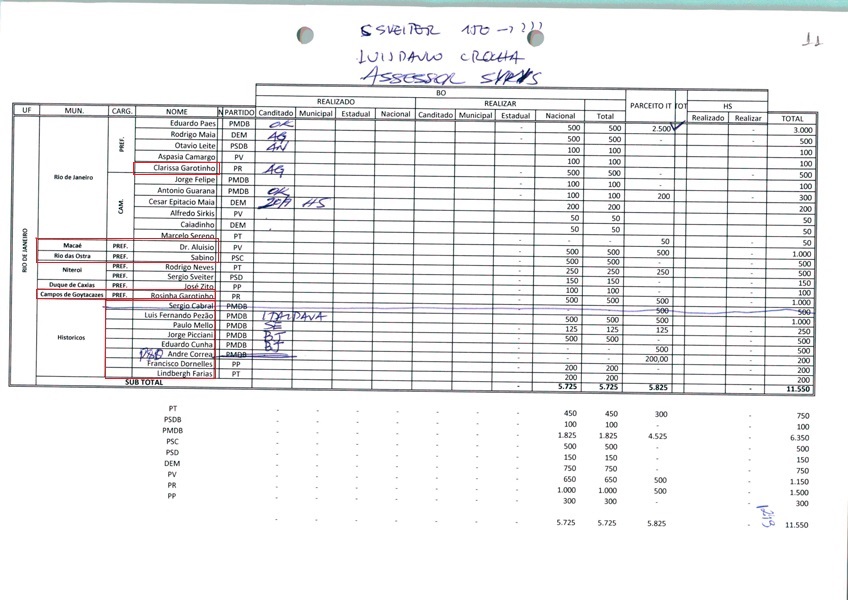 11
SSVEITER 150 -> ???
LUISPAULO CROCHA
ASSESSOR
BO
REALIZADO REALIZAR PARCEITO IT TOT HS
UF MUN. CARG. NOME N PARTIDO Canditado Municipal Estadual Nacional Canditado Municipal Estadual Nacional Total Realizado Realizar TOTAL
RIO DE JANEIRO
Rio de Janeiro
PREF.
Eduardo Paes PMDB OK - 500 500 2.500 - 3.000
Rodrigo Maia DEM AG - 500 500 - - 500
Otavio Leite PSDB AN 100 100 100
Aspasia Camargo PV 100 100 100
Clarissa Garotinho PR AG - 500 500 - - 500
CAM.
Jorge Felipe PMDB - 100 100 - - 100
Antonio Guarana PMDB OK - 100 100 200 - 300
Cesar Epitacio Maia DEM HS 200 200 200
Alfredo Sirkis PV 50 50 50
Caiadinho DEM 50 50 50
Marcelo Sereno PT - - - 50 - 50
Macaé PREF. Dr. Aluisio PV - 500 500 500 - 1.000
Rio das Ostra PREF. Sabino PSC - 500 500 - - 500
Niteroi PREF. Rodrigo Neves PT - 250 250 250 - 500
PREF. Sergio Sveiter PSD - 150 150 - - 150
Duque de Caxias PREF. José Zito PP - 100 100 - - 100
Campos de Goytacazes PREF. Rosinha Garotinho PR - 500 500 500 - 1.000
Historicos
Sergio Cabral PMDB - - - 500 - 500
Luis Fernando Pezão PMDB ITAIPAVA - 500 500 500 - 1.000
Paulo Mello PMDB SE - 125 125 125 - 250
Jorge Picciani PMDB BJ - 500 500 - - 500
Eduardo Cunha PMDB BJ - - - 500 - 500
PSD Andre Correa PMDB - - - 200,00 - 200
Francisco Dornelles PP 200 200 200
Lindbergh Farias PT 200 200 200
SUB TOTAL - 5.725 5.725 5.825 - 11.550
PT - - - - - - - 450 450 300 - 750
PSDB - - - - - - - 100 100 - 100
PMDB - - - - - - - 1.825 1.825 4.525 - 6.350
PSC - - - - - - - 500 500 - - 500
PSD - - - - - - - 150 150 - - 150
DEM - - - - - - - 750 750 - - 750
PV - - - - - - - 650 650 500 - 1.150
PR - - - - - - - 1.000 1.000 500 - 1.500
PP - - - - - - - 300 300 - - 300
- - - - - - - 5.725 5.725 5.825 - 11.550